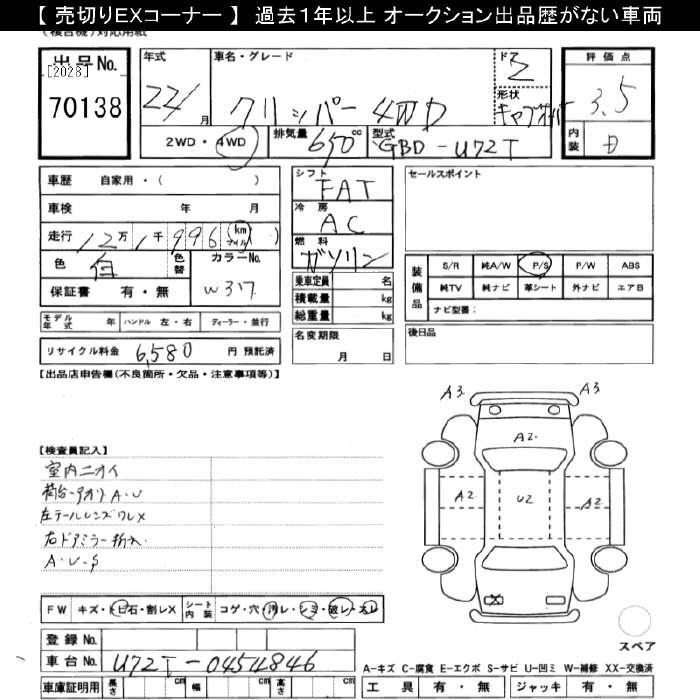 【 売切りEXコーナー 】 過去１年以上 オークション出品歴がない車両
出品No.
[2028]
70138
年式
22/ 月
車名・グレード
クリッパー 4WD
ドア
2
形状
キャブオーバー
評価点
3.5
内装
D
2WD・4WD
排気量 650 cc
型式 GBD-U72T
車歴 自家用・( )
車検 年 月
走行 12万 1千 996 km マイル ( )
色 白
色替
カラーNo. W317
保証書 有・無
シフト
FAT
冷房
AC
燃料
ガソリン
乗車定員 名
積載量 kg
総重量 kg
セールスポイント
装備品
S/R 純A/W P/S P/W ABS
純TV 純ナビ 革シート 外ナビ エアB
ナビ型番:
モデル年式 年 ハンドル 左・右 ディーラー・並行
名変期限 月 日
後日品
リサイクル料金 6,580 円 預託済
【出品店申告欄(不良箇所・欠品・注意事項等)】
A3 A3
A2
A2 U2 A2
【検査員記入】
室内ニオイ
荷台・アオリ A・U
左テールレンズワレX
右ドアミラー折れ
A・U・S
FW キズ・トビ石・割レX
シート内装 コゲ・穴・汚レ・シミ・破レ・スレ
登録No.
車台No. U72T-0454846
車庫証明用 長さ cm 幅 cm 高さ cm
スペア
A-キズ C-腐食 E-エクボ S-サビ U-凹ミ W-補修 XX-交換済
工具 有・無 ジャッキ 有・無